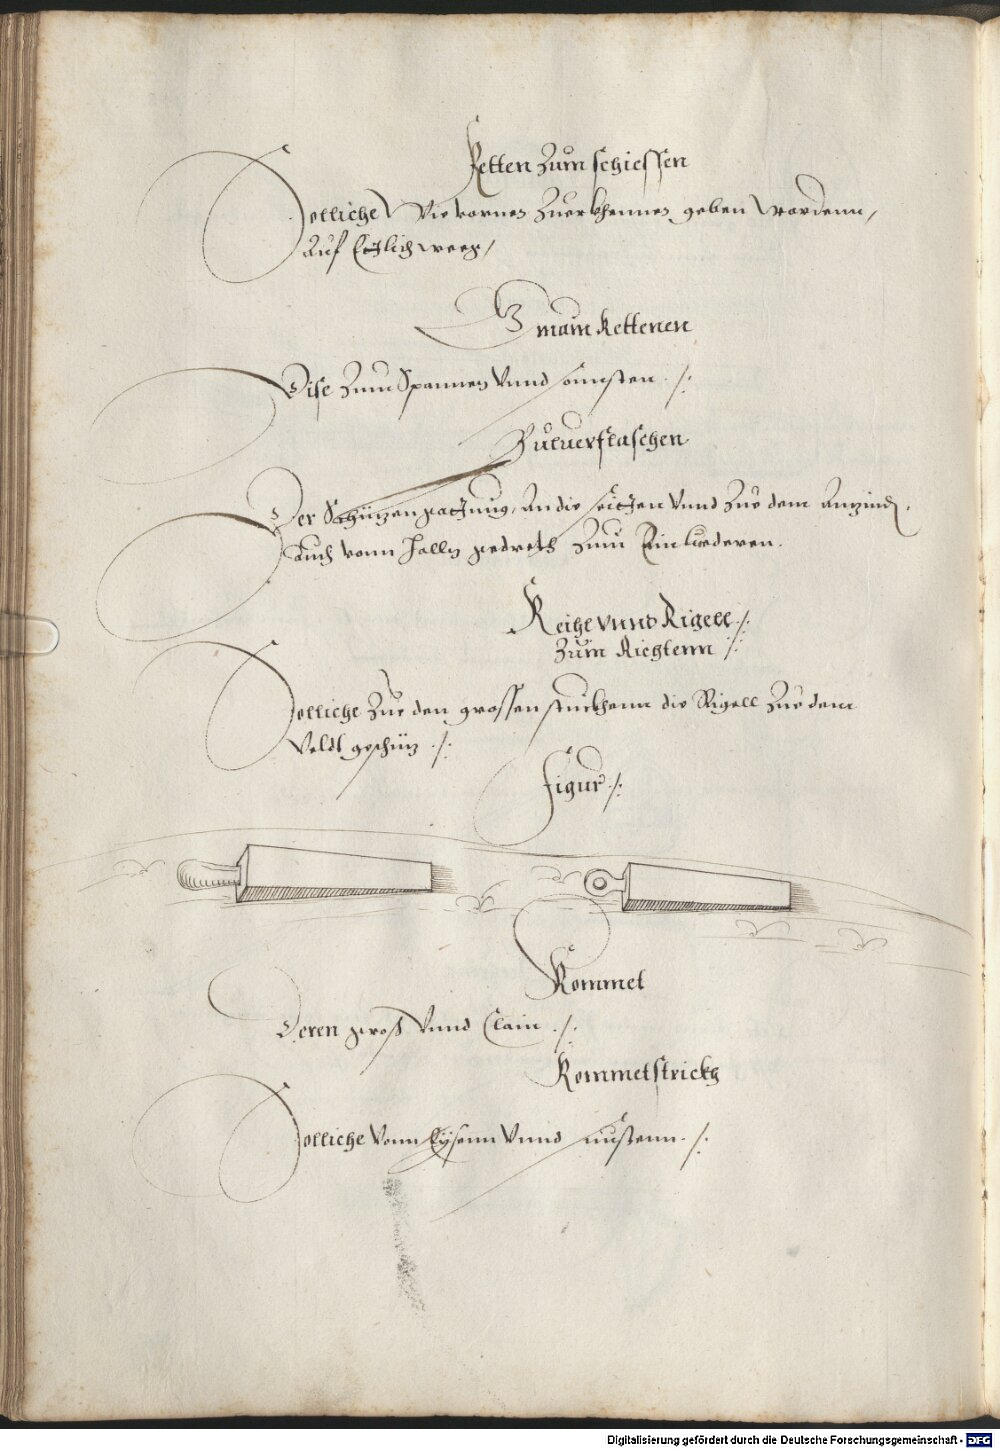 Ketten Zum schiessen
Solliche Wie vornen Zuerkhennen geben worden,
Auf Etlich weeg,
Gmain Kettenen
Dise Zum Spannen Vnnd sonnsten ./.
Puluerflaschen
Der Schützen gattung, An die seitten Vnnd Zue dem Anzind,
Auch vonn Holtz gedreth Zum Ein luederen.
Keihl vnnd Rigell ./.
Zum Richtenn ./.
Solliche Zue den grossen stuckhenn die Rigell Zue dem
Veldt geschütz ./.
Figur ./.
Kommet
Deren gross Vnnd Clain ./.
Kommetstrickh
Solliche Vonn Eysenn Vnnd sunstenn ./.
Digitalisierung gefördert durch die Deutsche Forschungsgemeinschaft - DFG